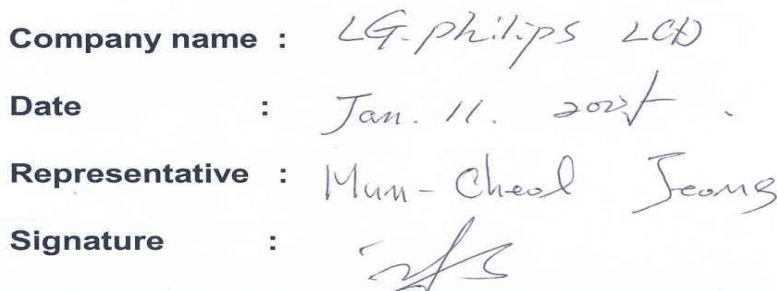 Company name : LG.philips LCD
Date : Jan. 11. 2005.
Representative : Mun-Cheol Jeong
Signature :